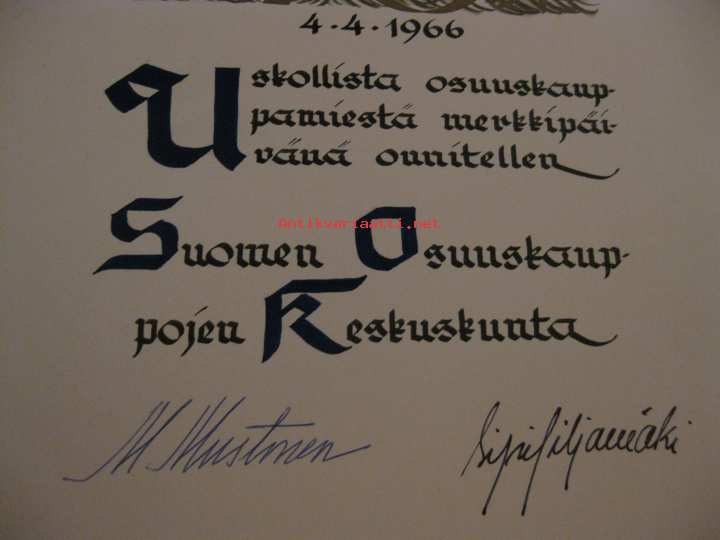 4·4·1966
Uskollista osuuskaup-
pamiestä merkkipäi-
vänä onnitellen
Antikvariaatti.net
Suomen Osuuskaup-
pojen Keskuskunta
M. Mustonen